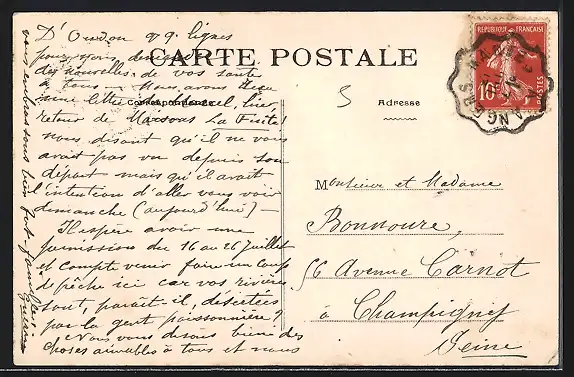 D'Oudon qq. lignes
pour vous demander
des nouvelles de vos santé
à tous. Nous avons reçu
une lettre de hier,
retour de Maisons La Fitte!
nous disant qu'il ne vous
avait pas vu depuis son
départ mais qu'il avait
l'intention d'aller vous voir
dimanche (aujourd'hui) —
Il espère avoir une
permission du 16 au 26 juillet
et compte venir faire un coup
de pêche ici car vos rivières
sont, paraît-il, désertées
par la gent poissonnière?
Nous vous disons bien des
choses aimables à tous et nous
vous embrassons bien fort
CARTE POSTALE
Correspondance
Adresse
5
REPUBLIQUE FRANÇAISE
10
POSTES
NANTES
ANGERS
Monsieur et Madame
Bonnoure,
56 Avenue Carnot
à Champigny
Seine